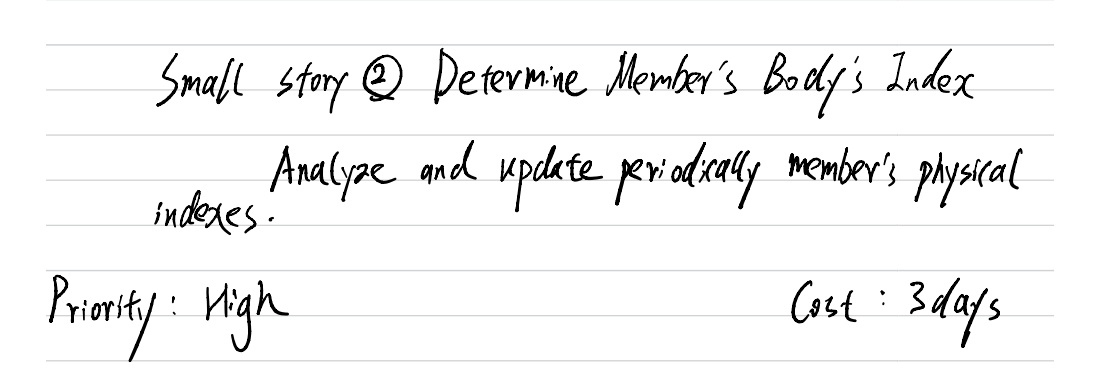 Small story ② Determine Member's Body's Index
Analyze and update periodically member's physical
indexes.
Priority: High Cost: 3 days